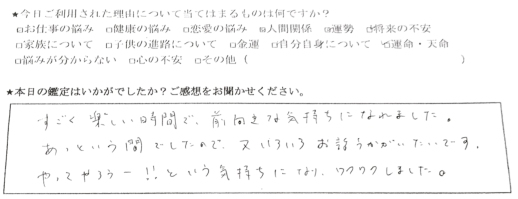 ★今日ご利用された理由について当てはまるものは何ですか?
☑お仕事の悩み □健康の悩み □恋愛の悩み ☑人間関係 ☑運勢 ☑将来の不安
□家族について □子供の進路について □金運 □自分自身について ☑運命・天命
□悩みが分からない □心の不安 □その他( )
★本日の鑑定はいかがでしたか?ご感想をお聞かせください。
すごく楽しい時間で、前向きな気持ちになれました。
あっという間でしたので、又いろいろお話うかがいたいです。
やってやろうー!!という気持ちになり、ワクワクしました。